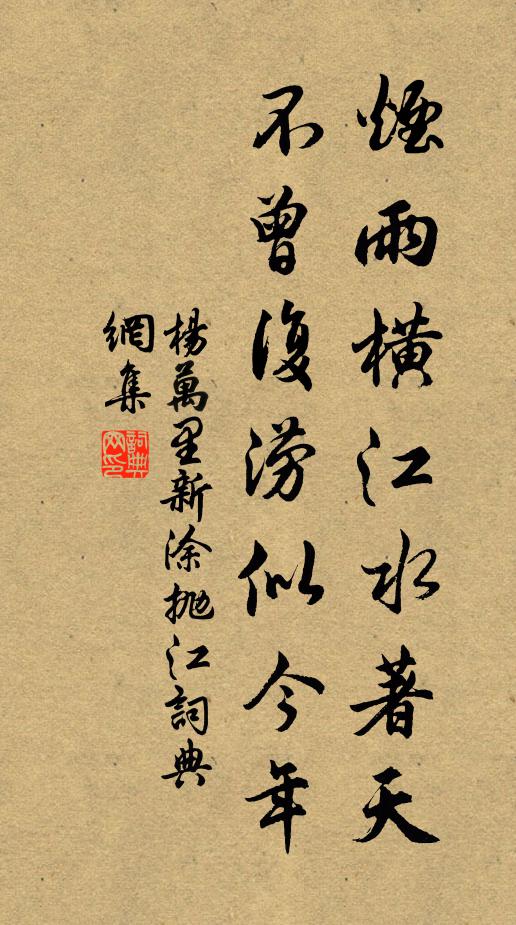 煙雨橫江水著天
不曾復澇似今年
楊萬里新涂抛江詞典
網集
詞典
网印